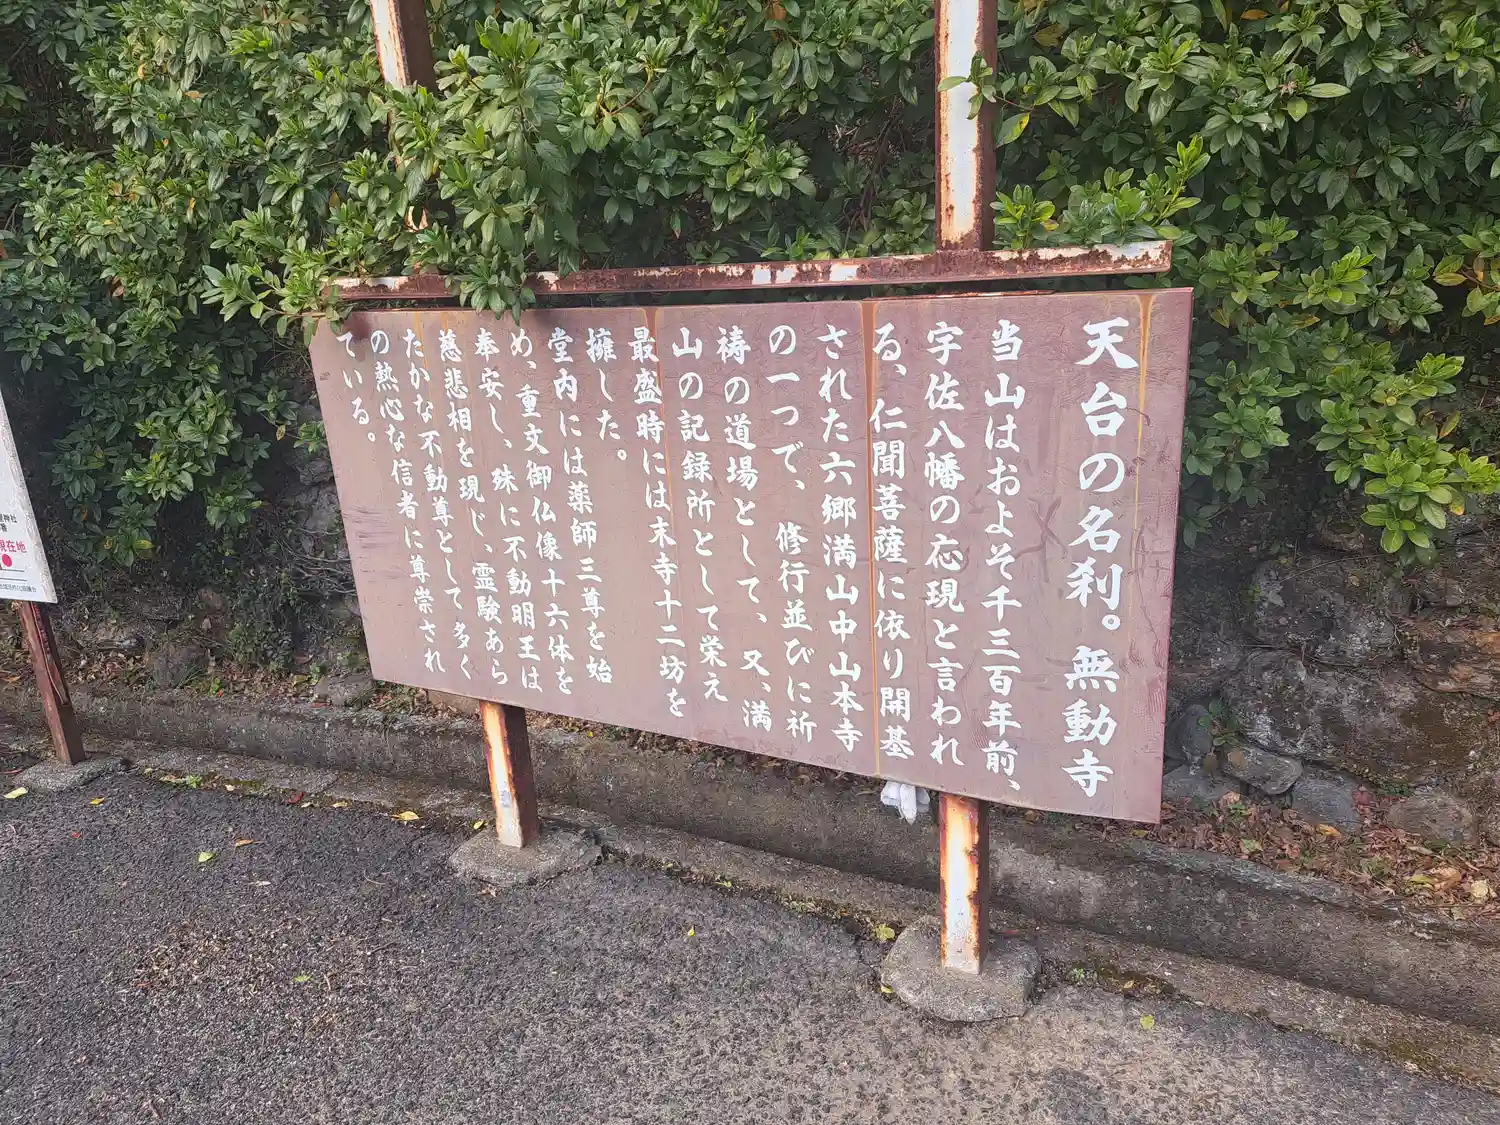 天台の名刹。無動寺
当山はおよそ千三百年前、
宇佐八幡の応現と言われ
る、仁聞菩薩に依り開基
された六郷満山中山本寺
の一つで、修行並びに祈
祷の道場として、又、満
山の記録所として栄え
最盛時には末寺十二坊を
擁した。
堂内には薬師三尊を始
め、重文御仏像十六体を
奉安し、殊に不動明王は
慈悲相を現じ、霊験あら
たかな不動尊として多く
の熱心な信者に尊崇され
ている。
現在地